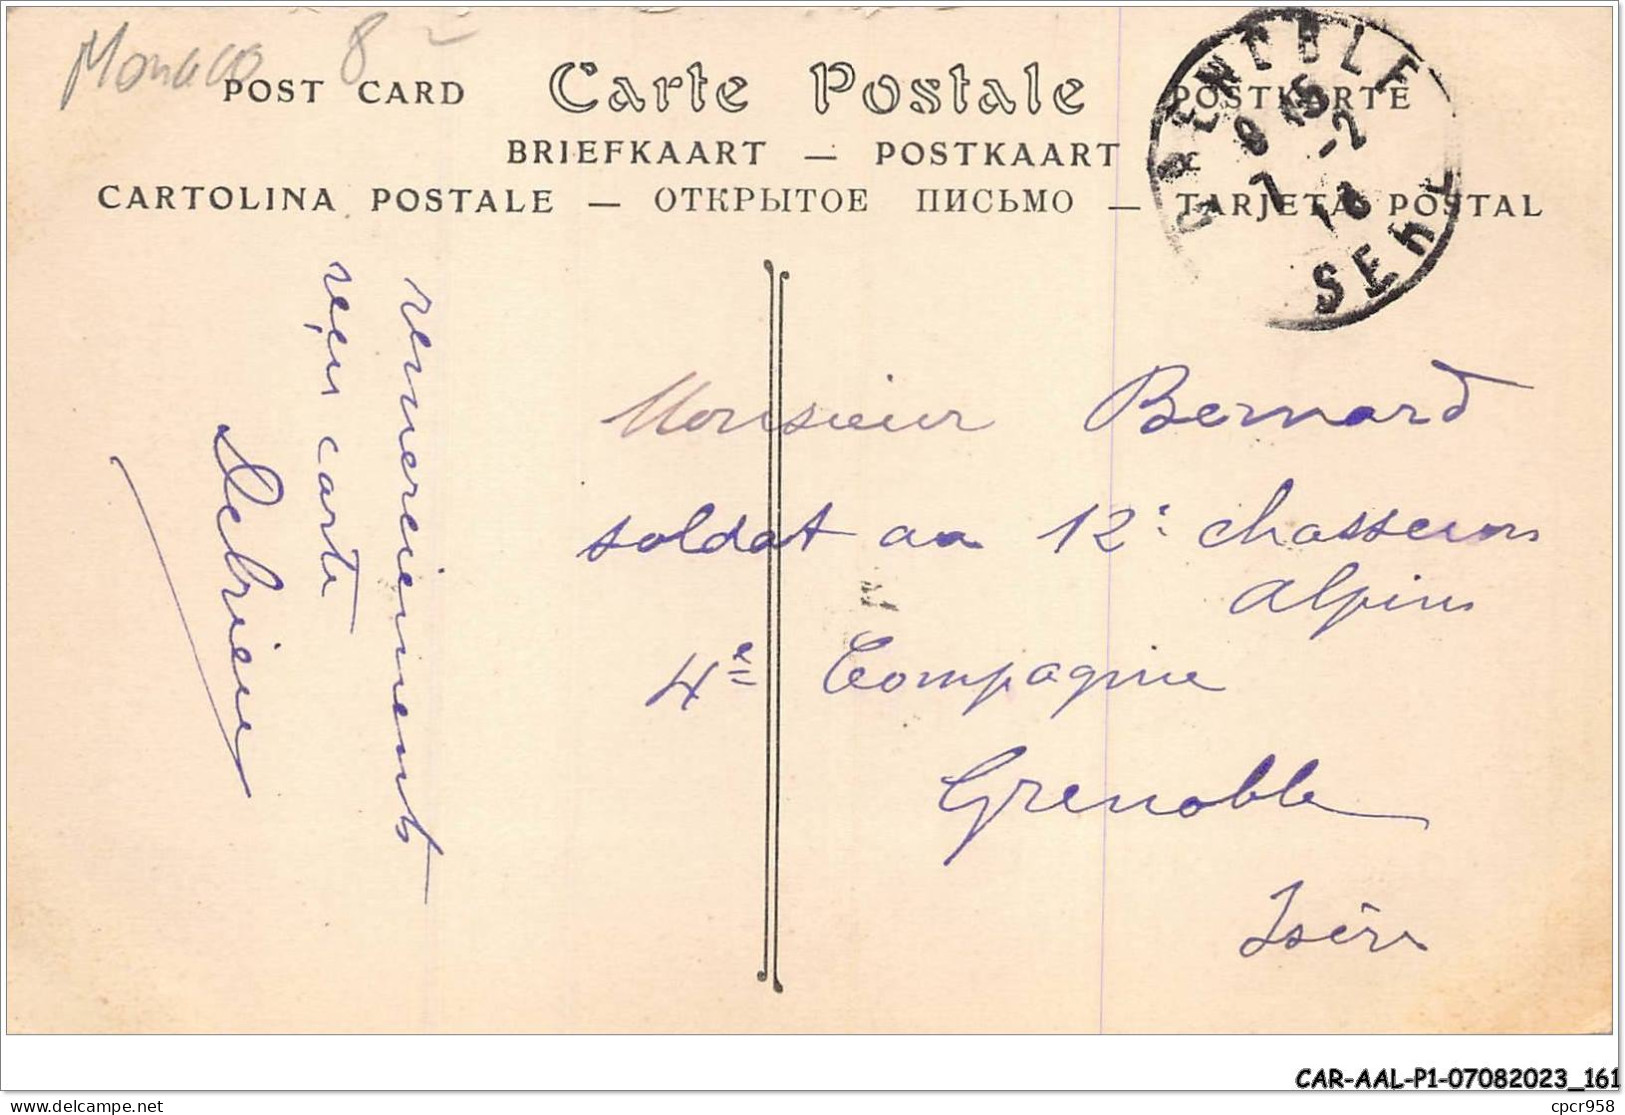 Monaco 8
POST CARD Carte Postale POSTKARTE
BRIEFKAART — POSTKAART
CARTOLINA POSTALE — ОТКРЫТОЕ ПИСЬМО — TARJETA POSTAL
GRENOBLE
7 -2
remerciements
reçu carte
Monsieur Bernard
soldat au 12e chasseurs
Alpins
4e Compagnie
Grenoble
Isère
CAR-AAL-P1-07082023_161
delcampe.net
cpcr958